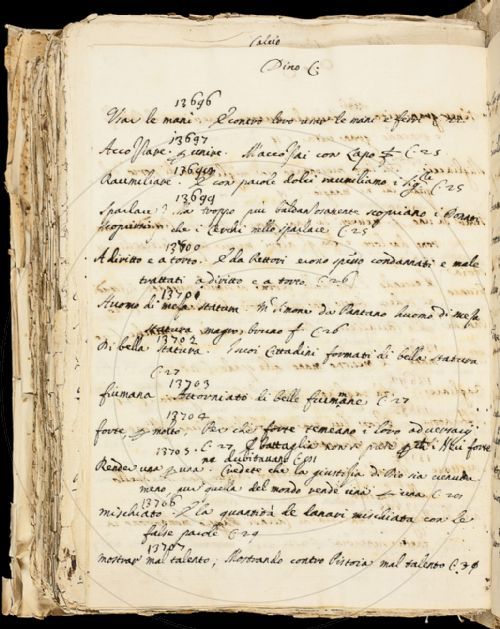 Dino C.
13696
Usar le mani. E contro loro usar le mani e ferri
13697
Accostare. p unire. M'accostai con Lapo C 25
Raumiliare. E con parole dolci raumiliamo i C 25
13699
Sparlare. ma troppo piu baldanzosamente scopriano i Donati
che i Cerchi nello sparlare C 25
13700
A diritto e a torto. E da Rettori erono spesso condannati e male
trattati a diritto e a torto. C 26
13701
Huomo di mesa statura. Mr Simone da Pantano huomo di mesa
statura magro, bruno C 26
13702
Di bella statura. I suoi Cittadini formati di bella statura
C 27
13703
fiumana Attorniato di belle fiumane C 27
13704
forte, p molto. Perchè forte temeano i loro adversarij
13705. C 27 E battaglia non vi
ne dubitavano
Render una p una. Vedete che la giustitia di Dio sia
meno, quella del mondo rende una p una C 201
13706
mischiato. E la quantità de danari mischiata con le
false parole C 29
13707
mostrar mal talento; Mostrando contro Pistoia mal talento C 30